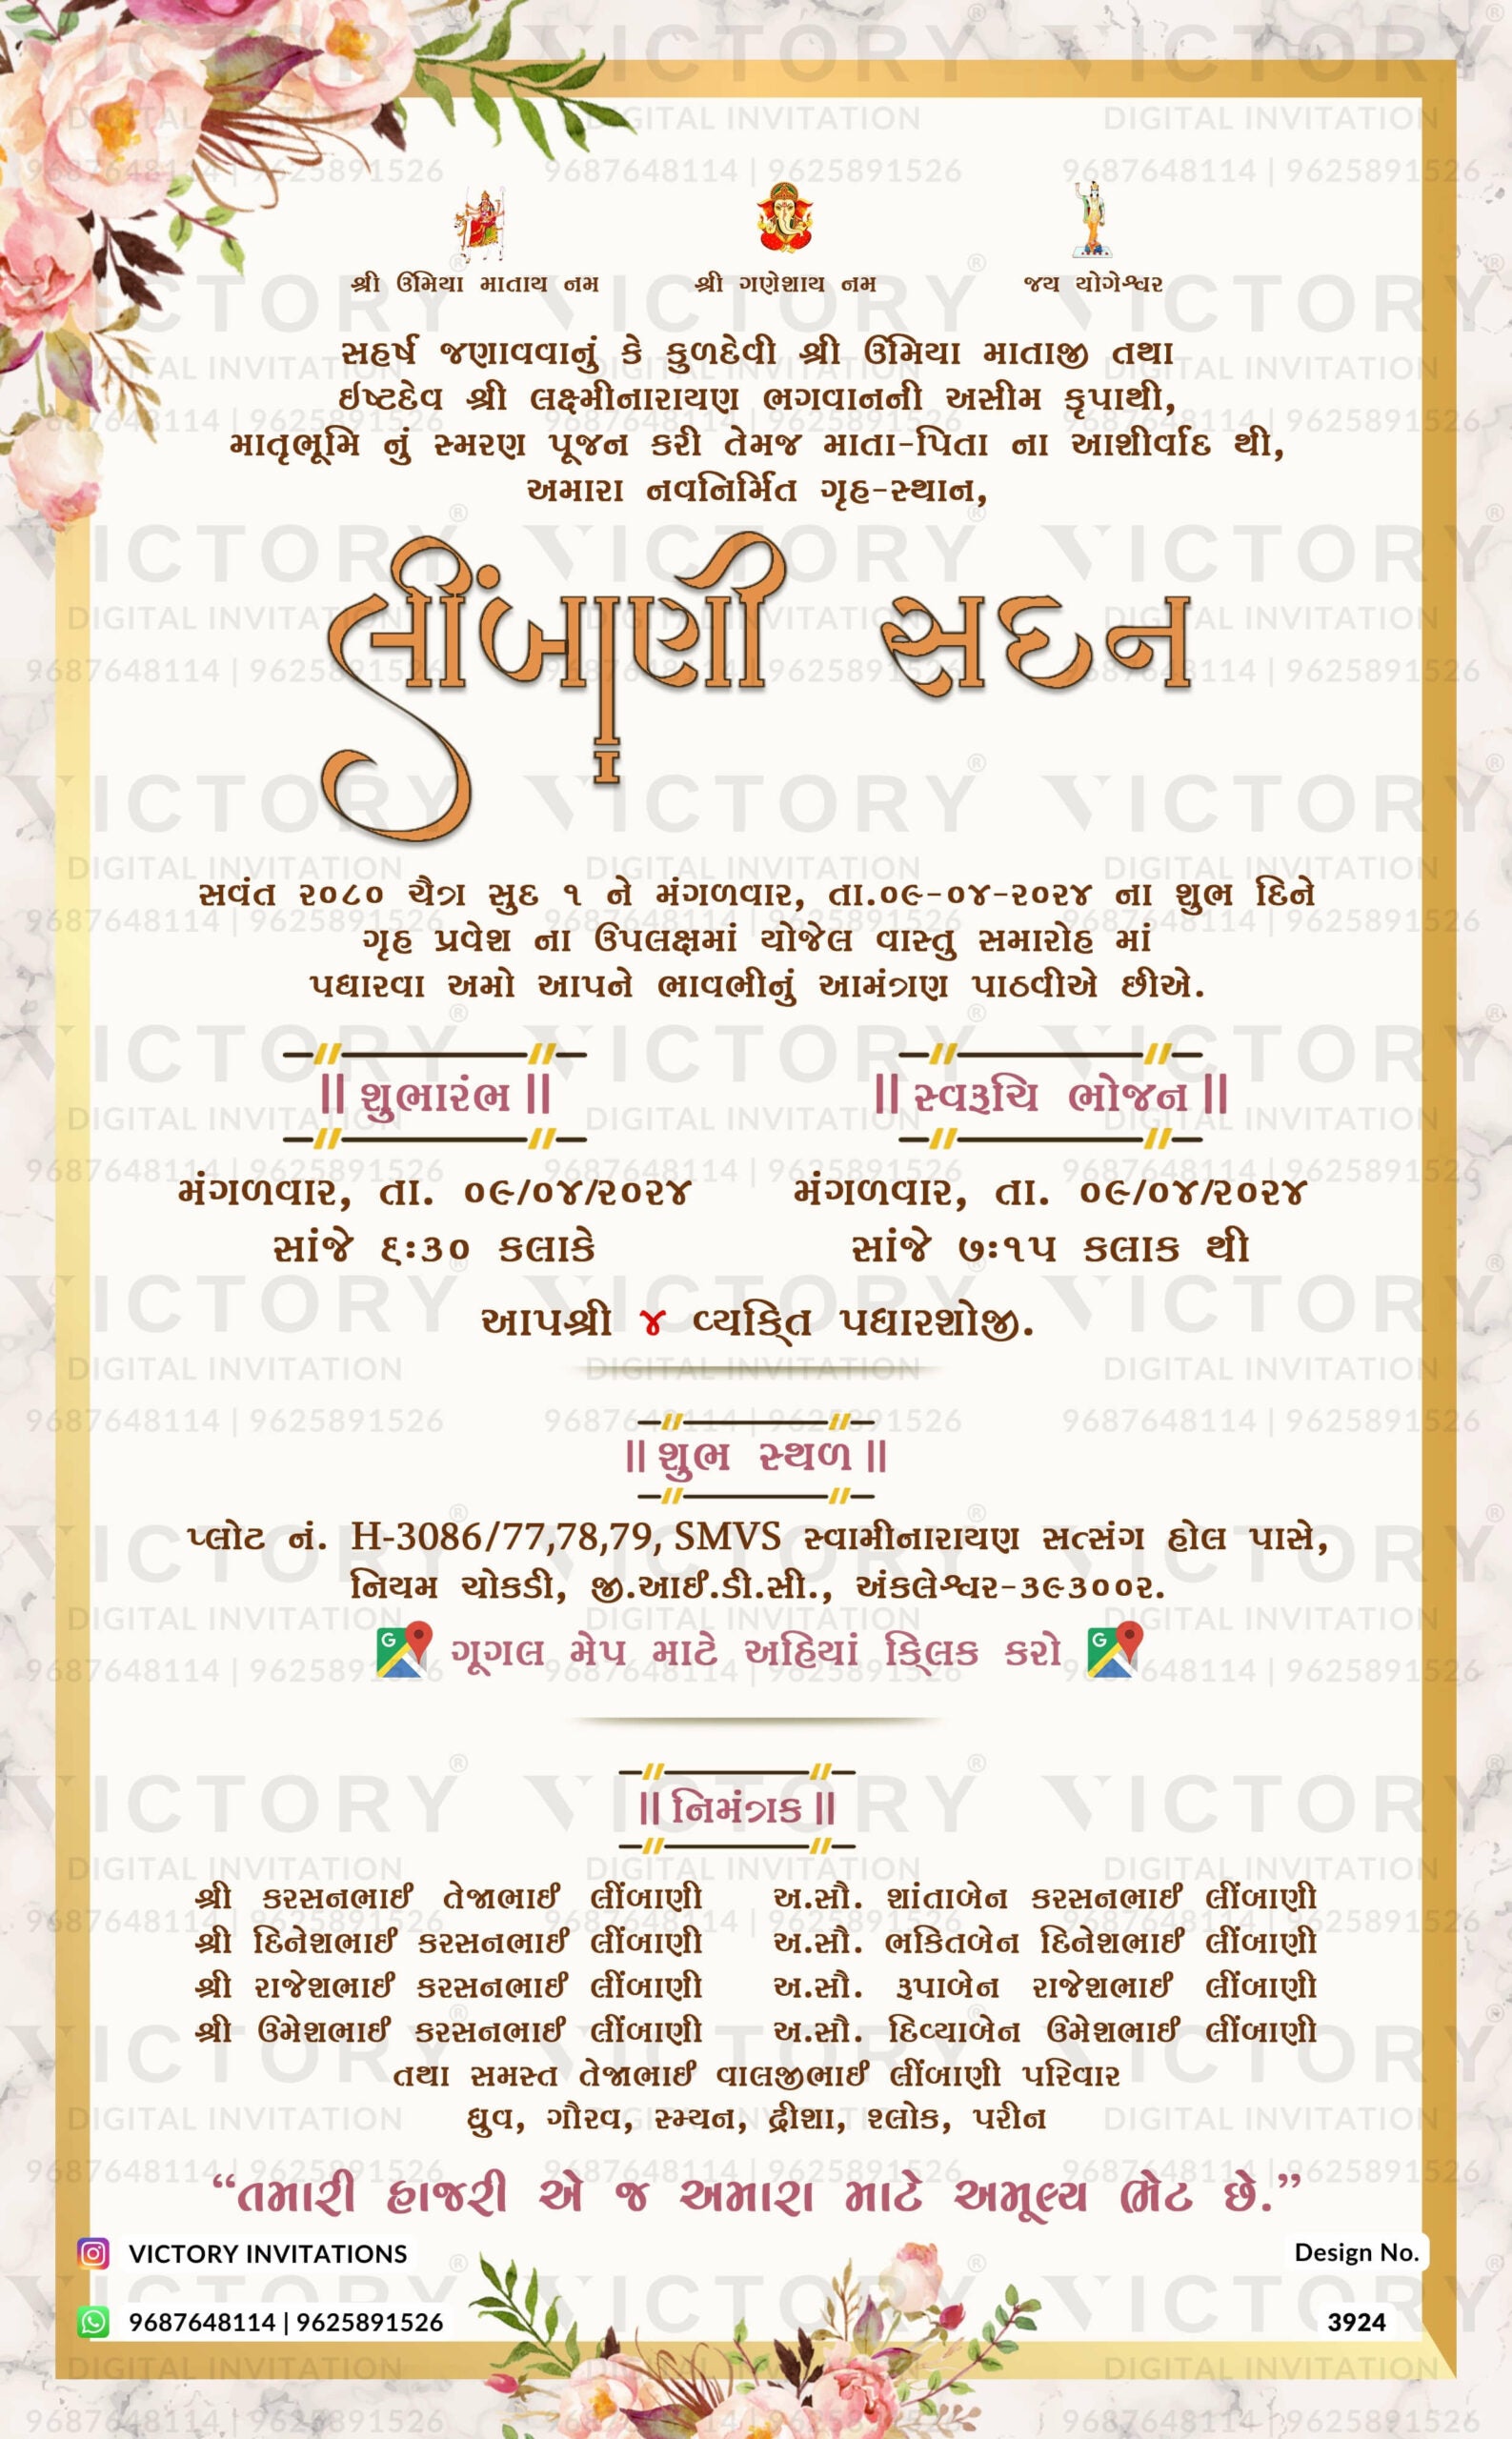 શ્રી ઉમિયા માતાય નમ
શ્રી ગણેશાય નમ
જય યોગેશ્વર
સહર્ષ જણાવવાનું કે કુળદેવી શ્રી ઉમિયા માતાજી તથા
ઈષ્ટદેવ શ્રી લક્ષ્મીનારાયણ ભગવાનની અસીમ કૃપાથી,
માતૃભૂમિ નું સ્મરણ પૂજન કરી તેમજ માતા-પિતા ના આશીર્વાદ થી,
અમારા નવનિર્મિત ગૃહ-સ્થાન,
લીંબાણી સદન
સવંત ૨૦૮૦ ચૈત્ર સુદ ૧ ને મંગળવાર, તા.૦૯-૦૪-૨૦૨૪ ના શુભ દિને
ગૃહ પ્રવેશ ના ઉપલક્ષમાં યોજેલ વાસ્તુ સમારોહ માં
પધારવા અમો આપને ભાવભીનું આમંત્રણ પાઠવીએ છીએ.
|| શુભારંભ ||
મંગળવાર, તા. ૦૯/૦૪/૨૦૨૪
સાંજે ૬:૩૦ કલાકે
|| સ્વરૂચિ ભોજન ||
મંગળવાર, તા. ૦૯/૦૪/૨૦૨૪
સાંજે ૭:૧૫ કલાક થી
આપશ્રી ૪ વ્યક્તિ પધારશોજી.
|| શુભ સ્થળ ||
પ્લોટ નં. H-3086/77,78,79, SMVS સ્વામીનારાયણ સત્સંગ હોલ પાસે,
નિયમ ચોકડી, જી.આઈ.ડી.સી., અંકલેશ્વર-૩૯૩૦૦૨.
ગૂગલ મેપ માટે અહિયાં ક્લિક કરો
|| નિમંત્રક ||
શ્રી કરસનભાઈ તેજાભાઈ લીંબાણી
શ્રી દિનેશભાઈ કરસનભાઈ લીંબાણી
શ્રી રાજેશભાઈ કરસનભાઈ લીંબાણી
શ્રી ઉમેશભાઈ કરસનભાઈ લીંબાણી
અ.સૌ. શાંતાબેન કરસનભાઈ લીંબાણી
અ.સૌ. ભક્તિબેન દિનેશભાઈ લીંબાણી
અ.સૌ. રૂપાબેન રાજેશભાઈ લીંબાણી
અ.સૌ. દિવ્યાબેન ઉમેશભાઈ લીંબાણી
તથા સમસ્ત તેજાભાઈ વાલજીભાઈ લીંબાણી પરિવાર
ધ્રુવ, ગૌરવ, સ્મ્યન, દ્રીશા, શ્લોક, પરીન
“તમારી હાજરી એ જ અમારા માટે અમૂલ્ય ભેટ છે.”
VICTORY INVITATIONS
9687648114 | 9625891526
Design No.
3924
VICTORY
DIGITAL INVITATION
9687648114 | 9625891526